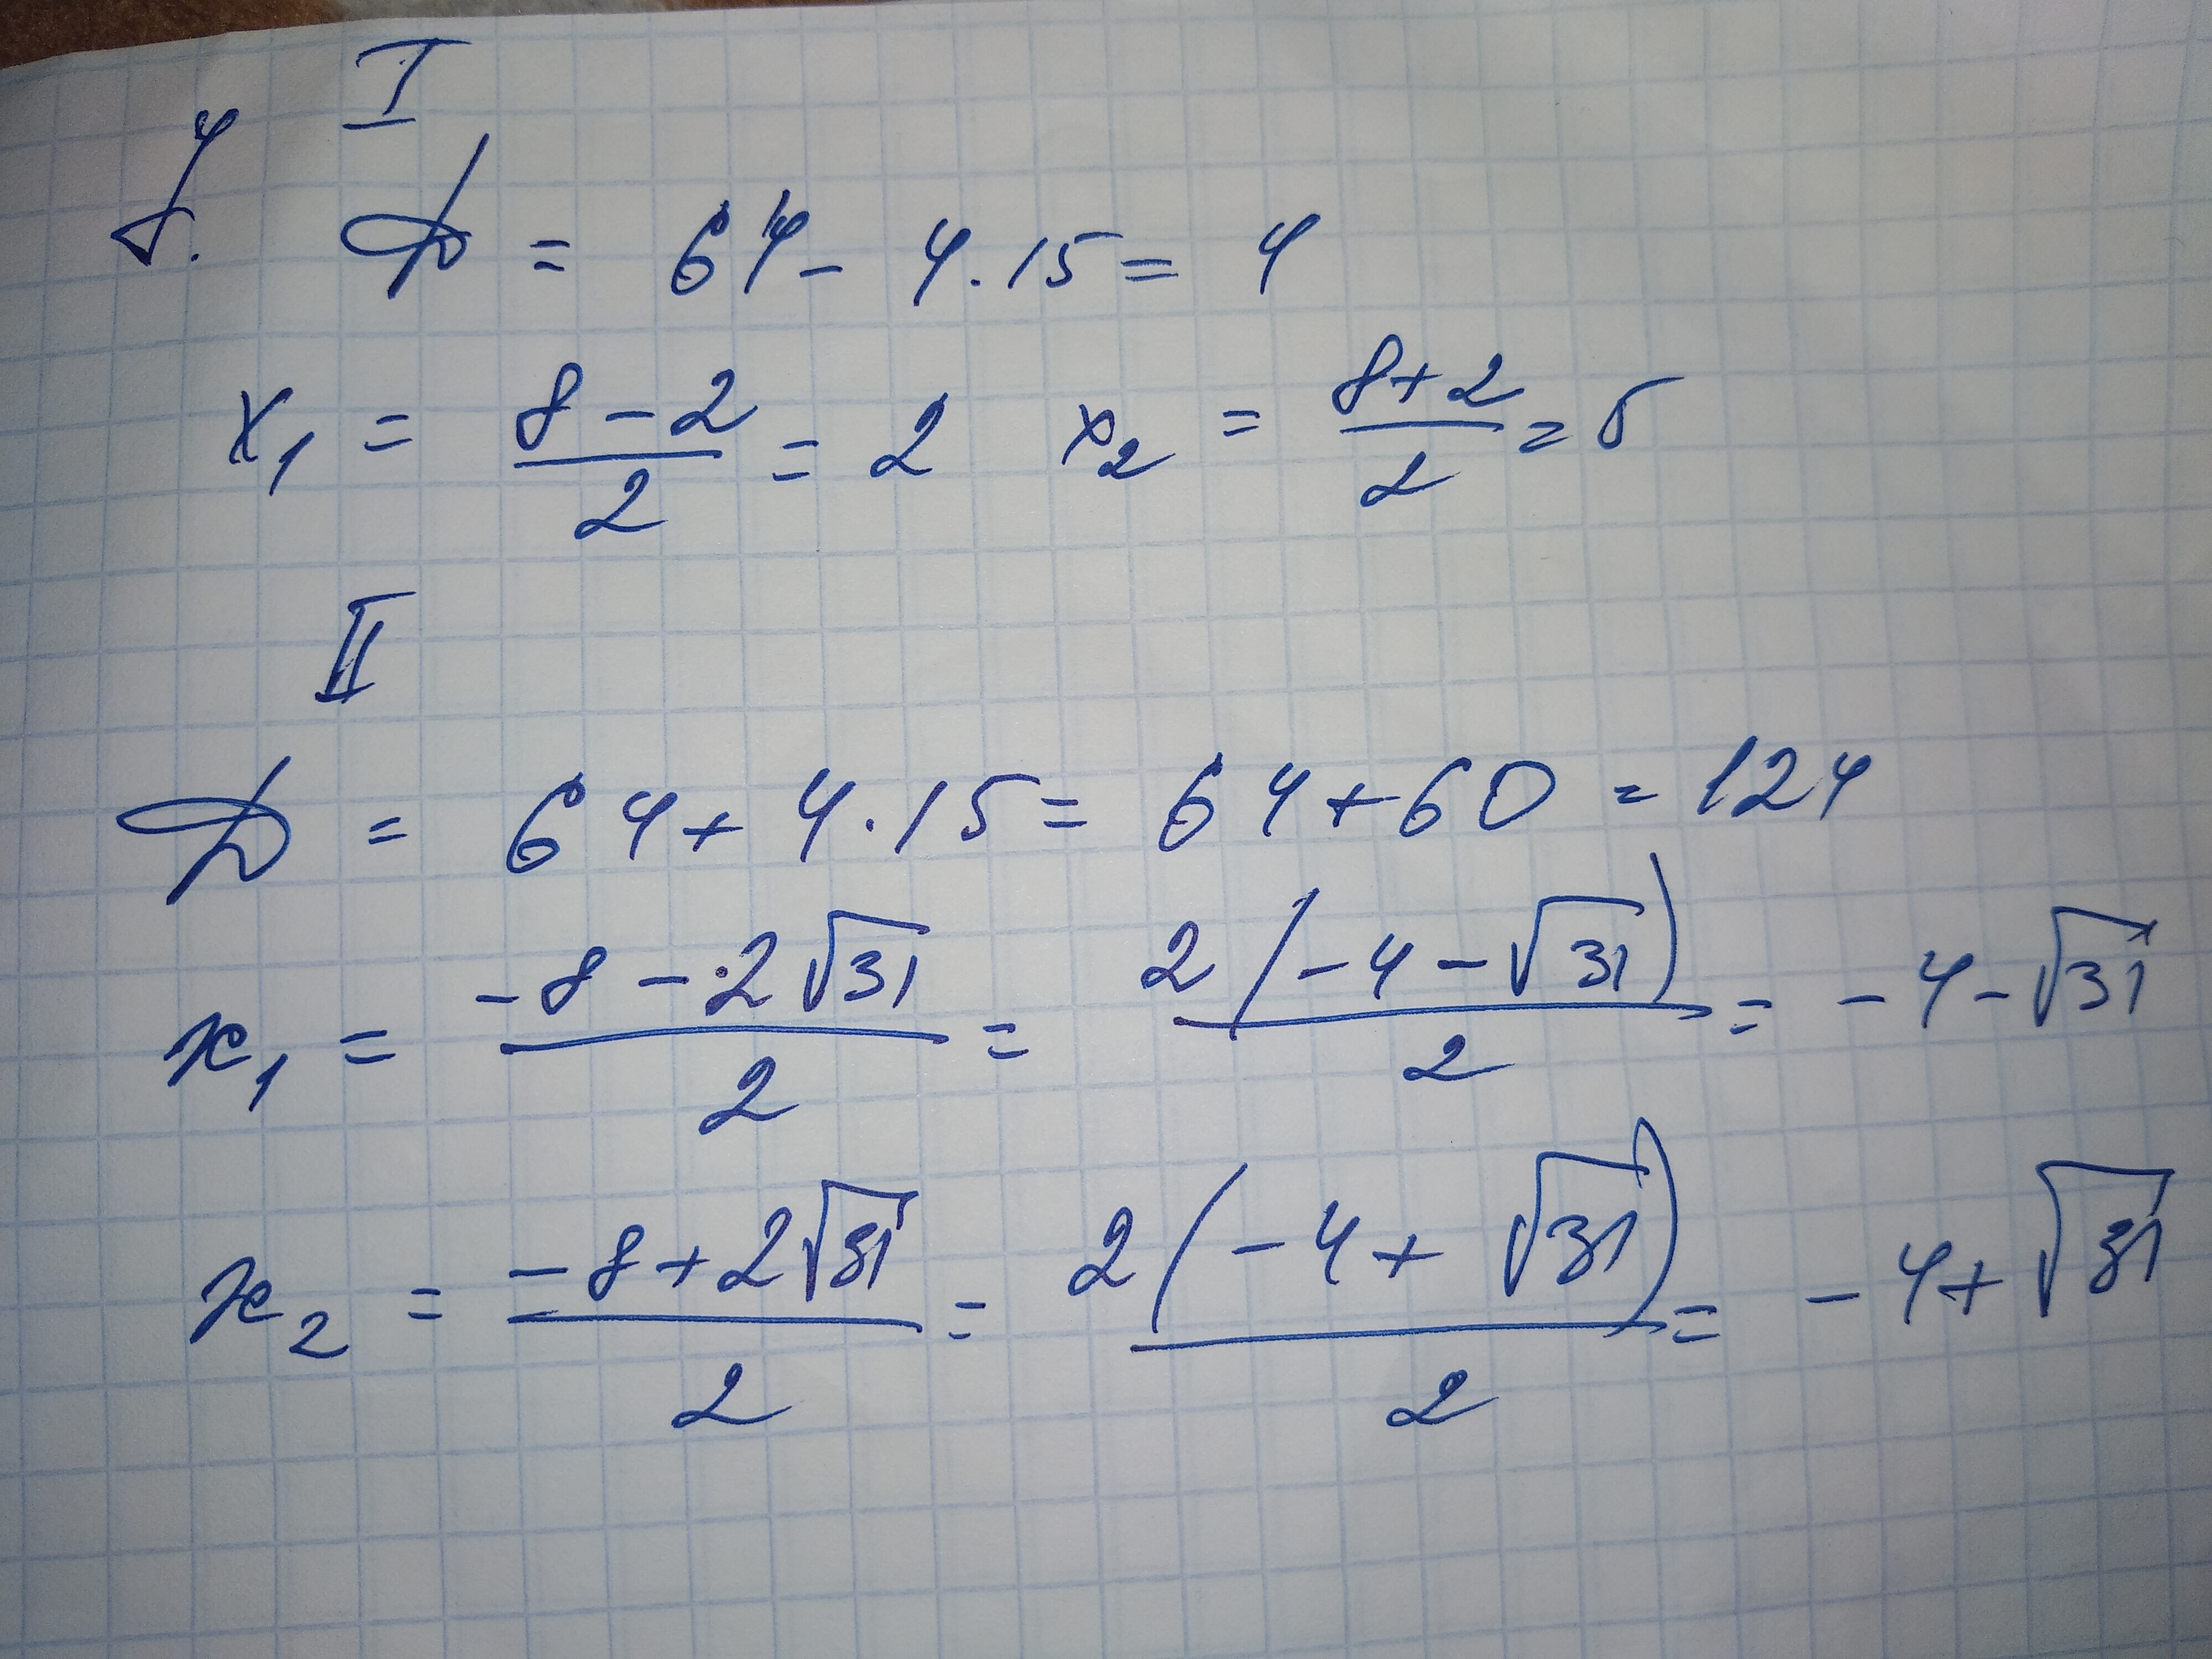 I
y. D = 64 - 4·15 = 4
x₁ = (8 - 2)/2 = 2 x₂ = (8 + 2)/2 = 5
II
D = 64 + 4·15 = 64 + 60 = 124
x₁ = (-8 - 2√31)/2 = 2(-4 - √31)/2 = -4 - √31
x₂ = (-8 + 2√31)/2 = 2(-4 + √31)/2 = -4 + √31